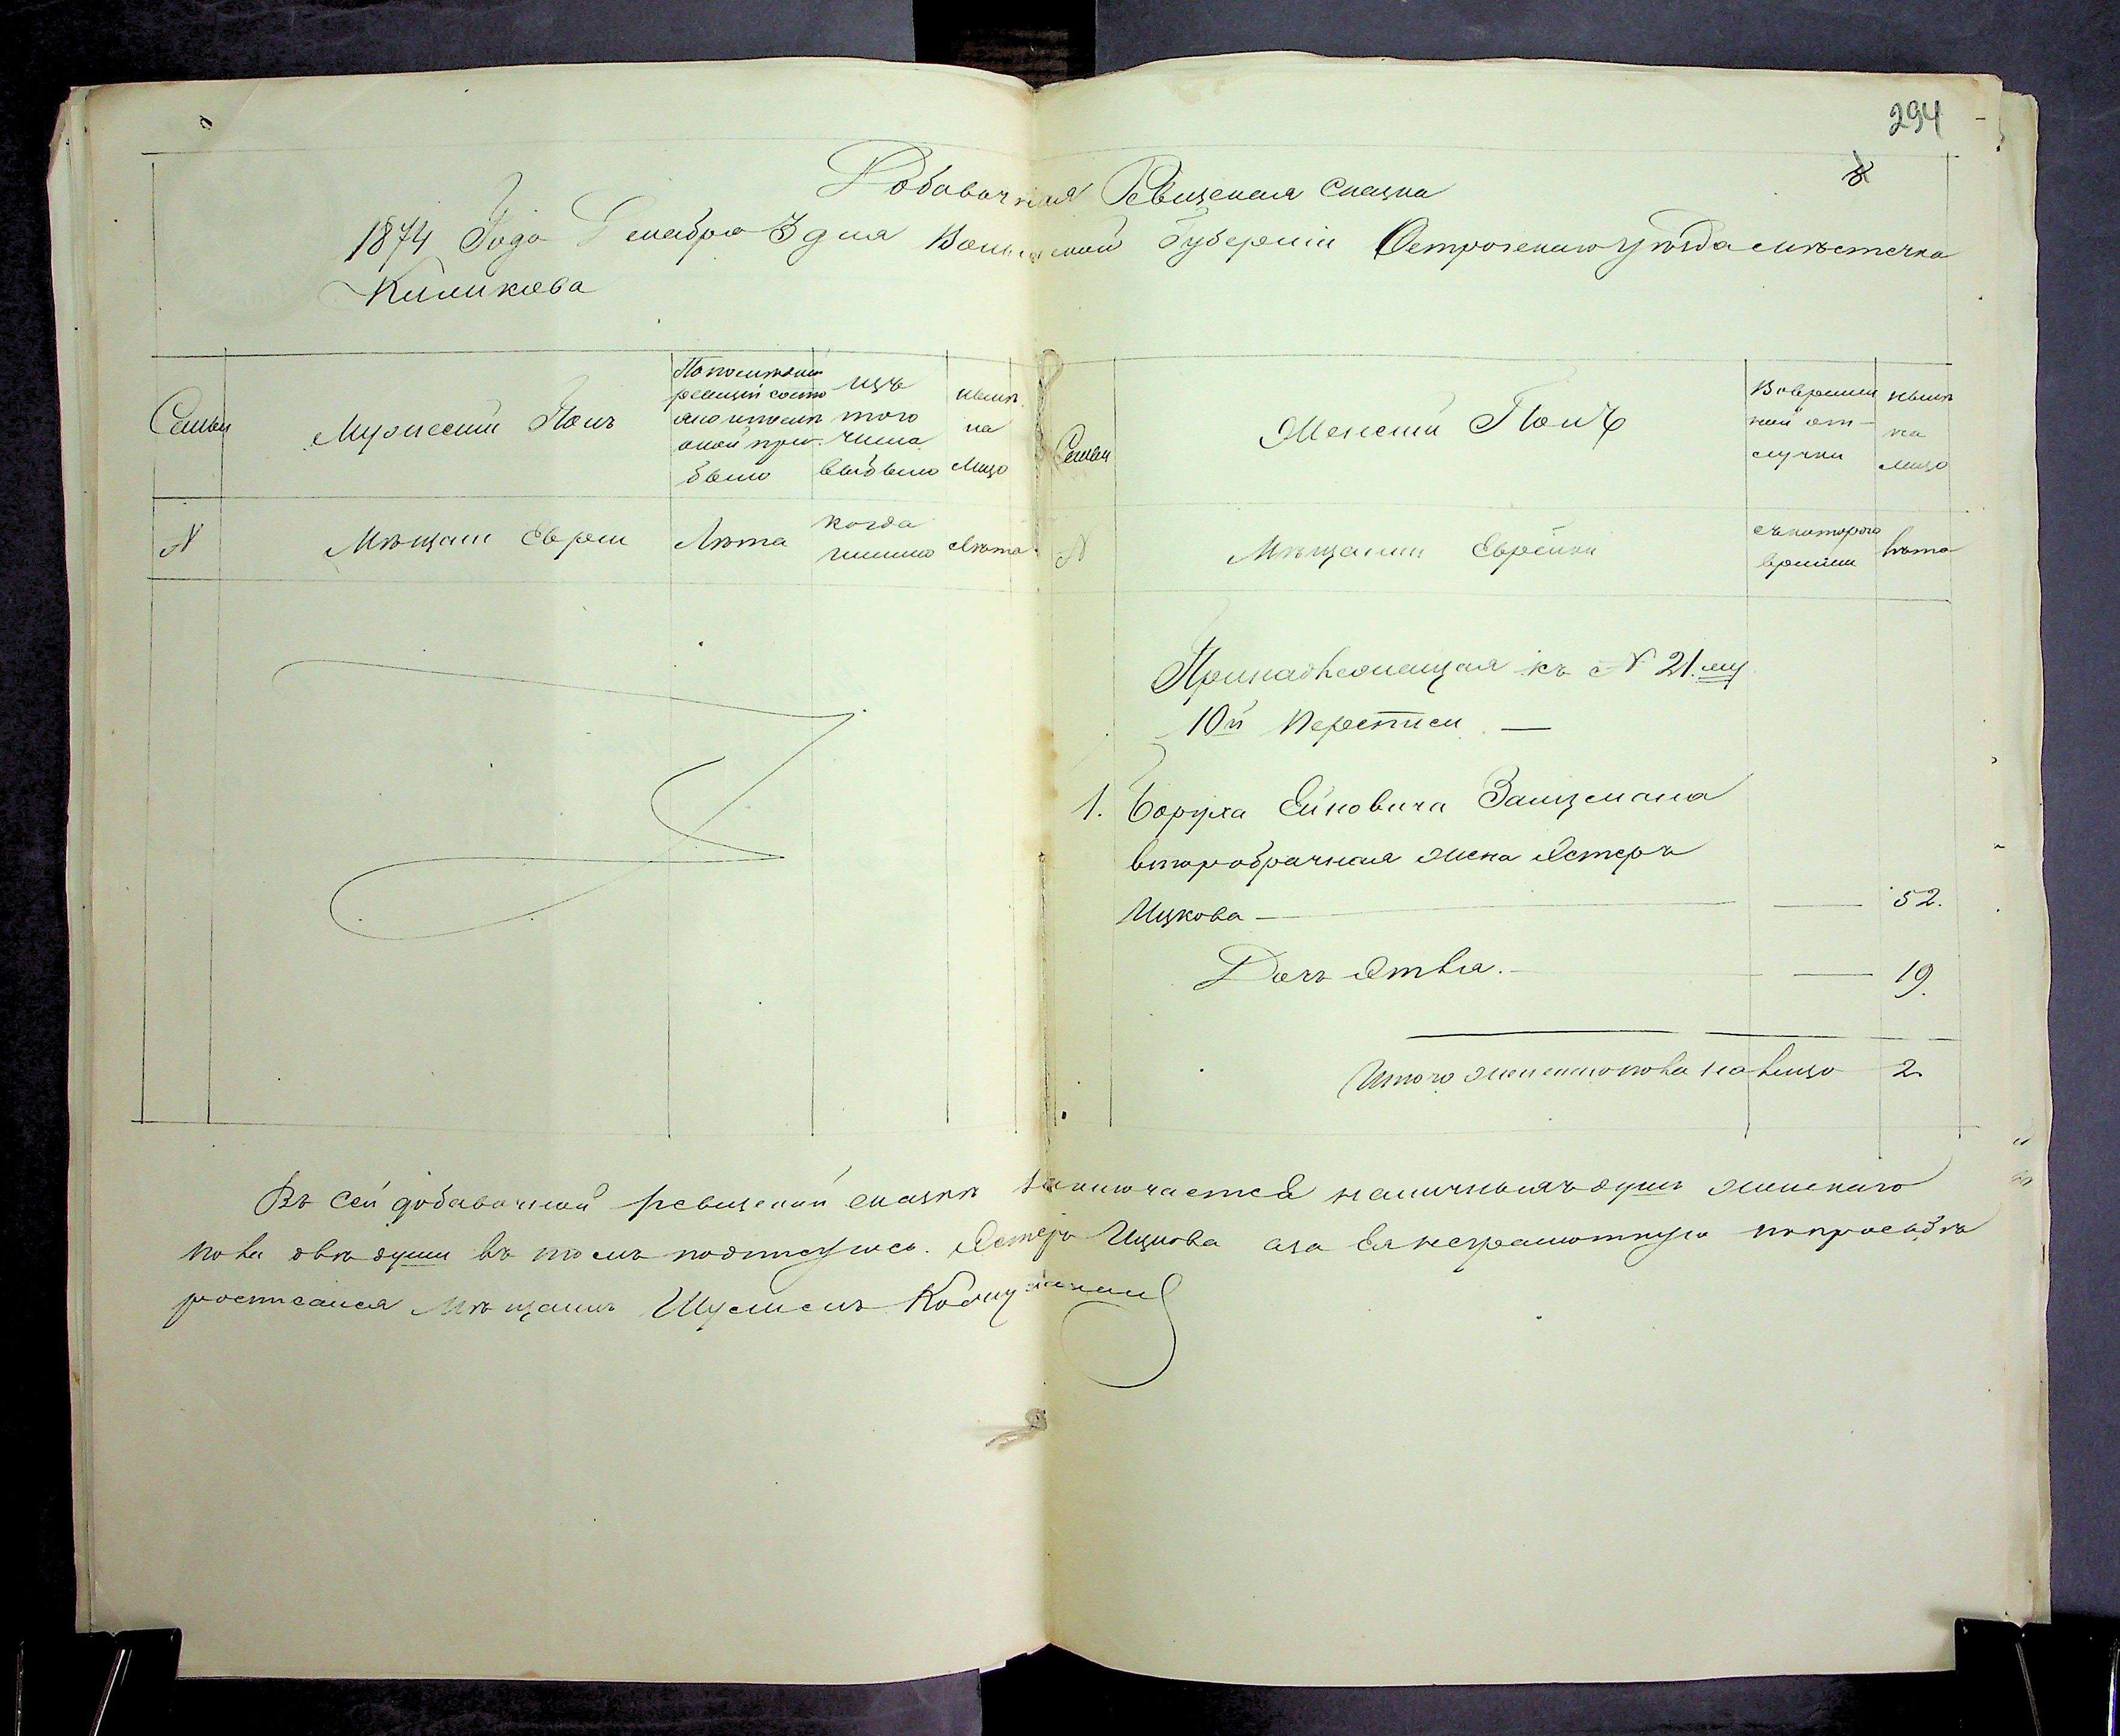 294
Добавочная Ревизская сказка
1874 Года Декабря 3 дня Волынской Губерніи Острожскаго уѣзда мѣстечка
Киликіева
Семьи
Мужескій Полъ
По послѣдней ревизіи состояло и послѣ оной прибыло
изъ того числа выбыло
нынѣ на лицо
N
Мѣщане Евреи
Лѣта
когда именно
Лѣта
Семьи
Женскій Полъ
Во временной отлучки
нынѣ на лицо
N
Мѣщанки Еврейки
съ котораго времени
лѣта
Принадлежащая къ N 21.му
10й Переписи —
1. Боруха Ейновича Зальцмана
второбрачная жена Эстеръ
Ицкова — — 52.
Дочь Этля. — — 19.
Итого женского пола на лицо 2
Въ сей добавочной ревизской сказкѣ заключается наличныхъ душъ женскаго
пола двѣ души въ томъ подписуюсь. Эстеръ Ицкова а за Ея неграмотную по просьбѣ
росписался Мѣщанинъ